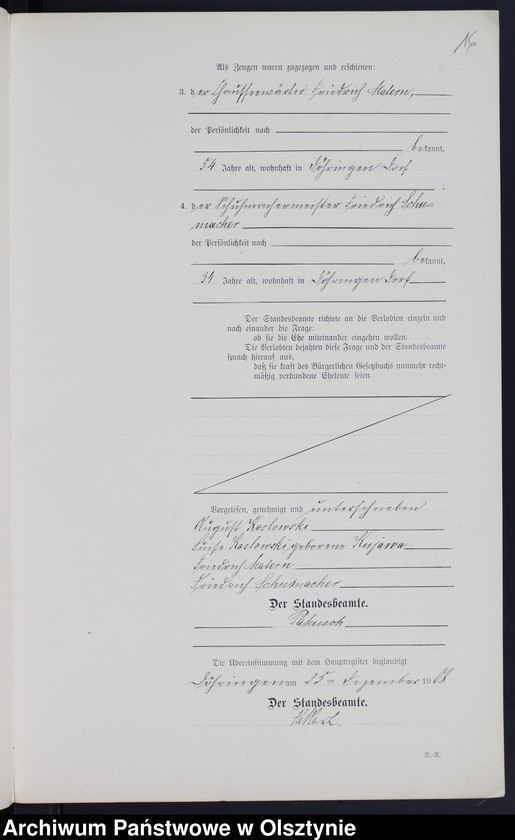 16
Als Zeugen waren zugezogen und erschienen:
3. der Chausseewärter Friedrich Matern,
der Persönlichkeit nach
bekannt,
54 Jahre alt, wohnhaft in Döhringen Dorf
;
4. der Schuhmachermeister Friedrich Schu-
macher
der Persönlichkeit nach
bekannt,
34 Jahre alt, wohnhaft in Döhringen Dorf
Der Standesbeamte richtete an die Verlobten einzeln und
nach einander die Frage:
ob sie die Ehe miteinander eingehen wollen.
Die Verlobten bejahten diese Frage und der Standesbeamte
sprach hierauf aus,
daß sie kraft des Bürgerlichen Gesetzbuchs nunmehr recht-
mäßig verbundene Eheleute seien.
Vorgelesen, genehmigt und unterschrieben
August Koslowski
Luise Koslowski geborene Kujawa
Friedrich Matern
Friedrich Schumacher
Der Standesbeamte.
Die Übereinstimmung mit dem Hauptregister beglaubigt
Döhringen am 25ten Dezember 1908.
Der Standesbeamte.
N.-R.
Archiwum Państwowe w Olsztynie